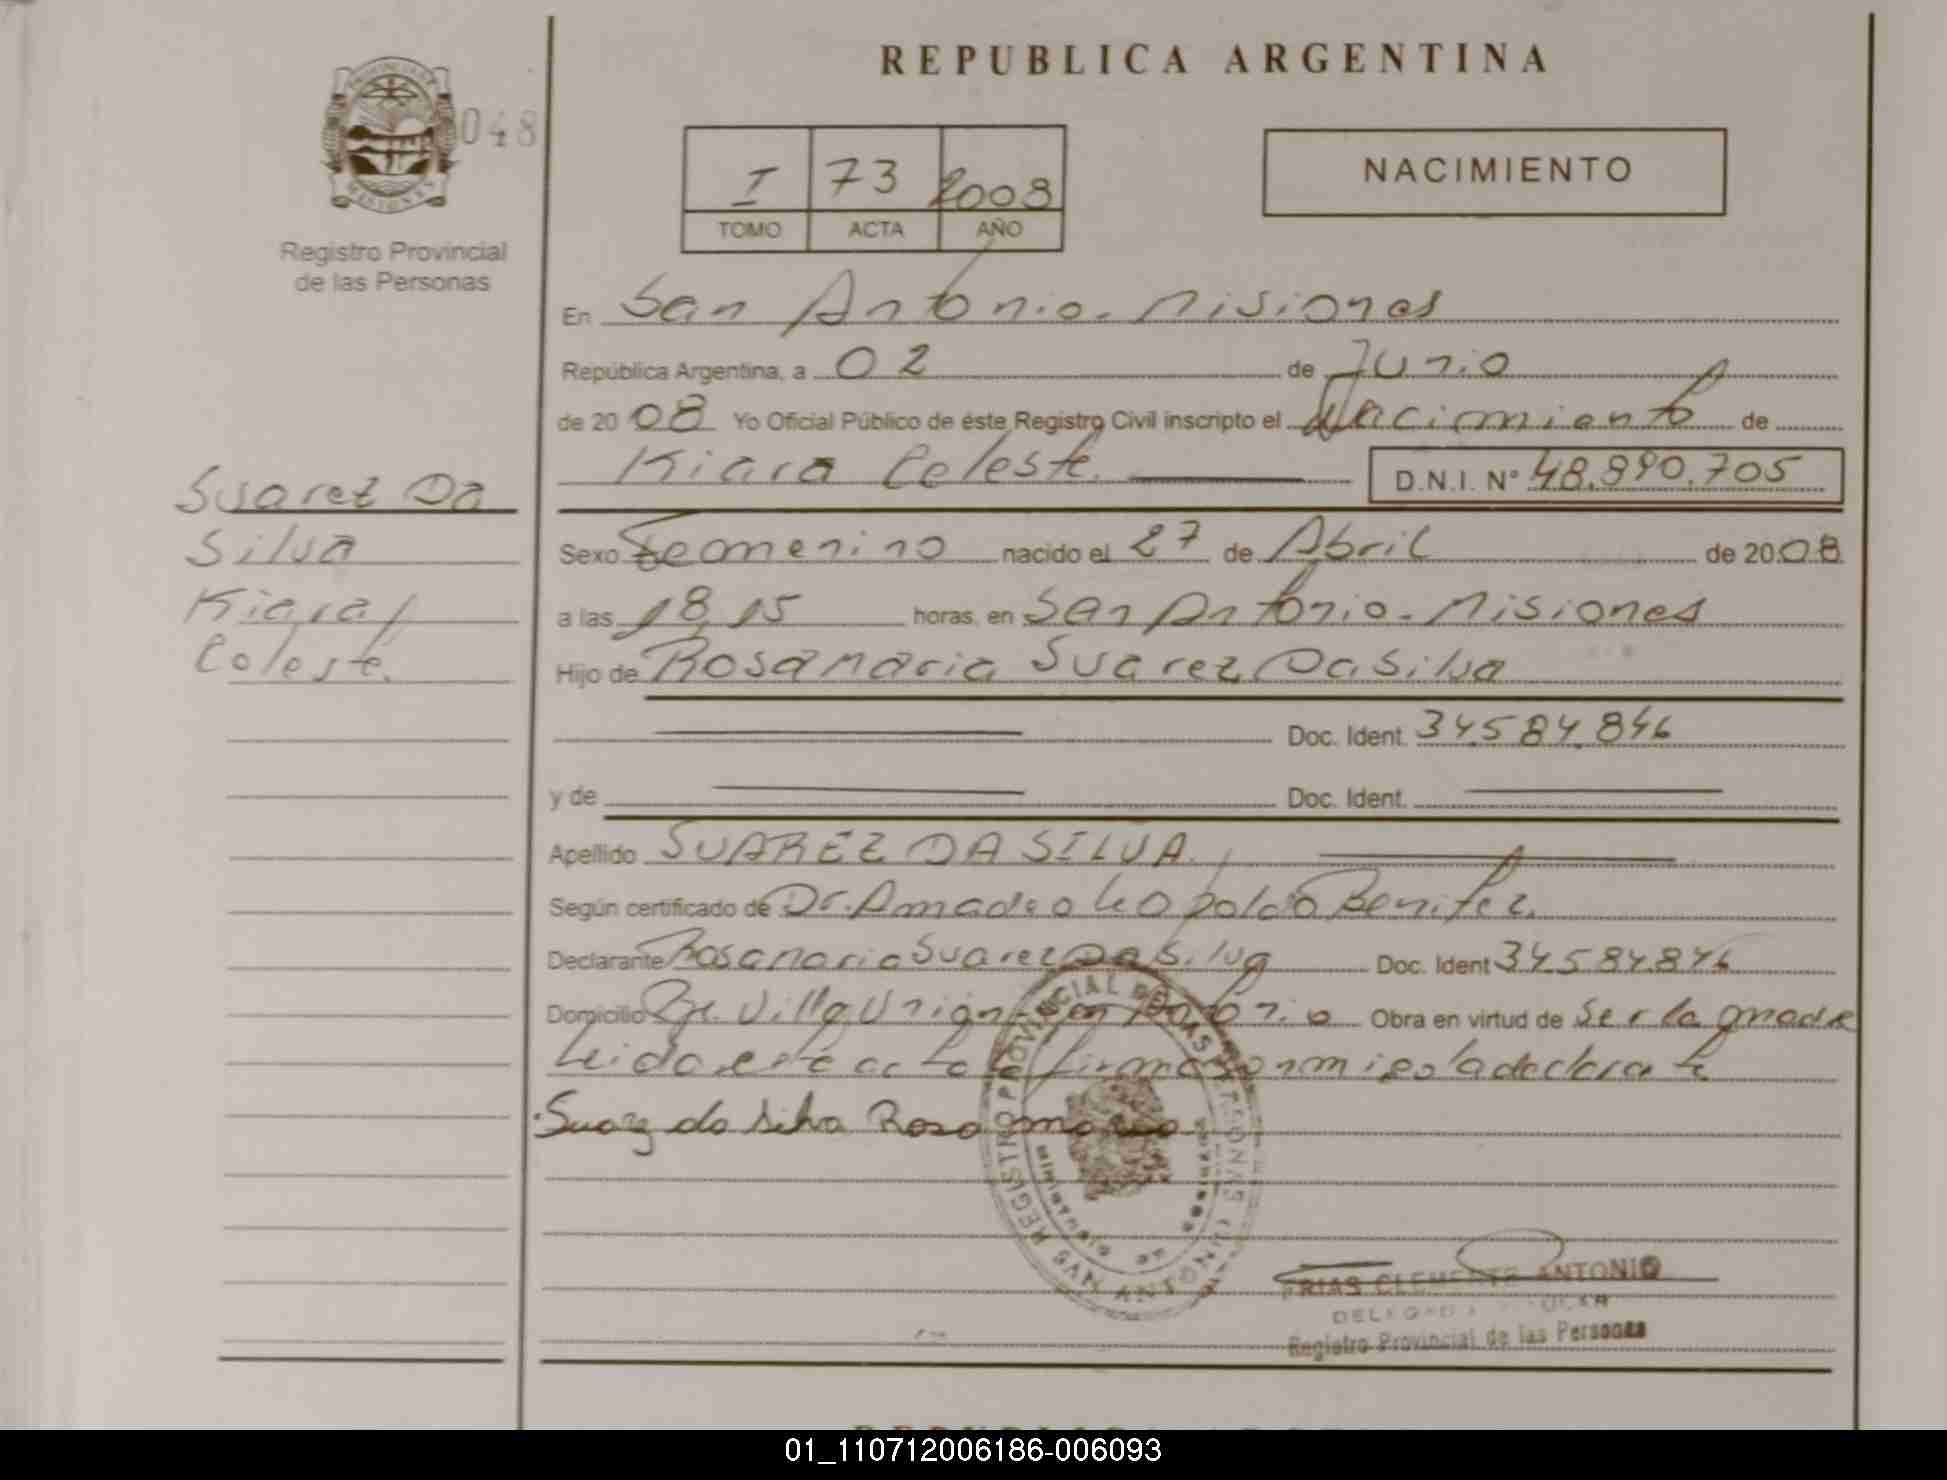 REPUBLICA ARGENTINA
PROVINCIA DE MISIONES
048
Registro Provincial
de las Personas
I 73 2008
TOMO ACTA AÑO
NACIMIENTO
En San Antonio. Misiones
República Argentina, a 02 de Junio
de 2008 Yo Oficial Público de éste Registro Civil inscripto el Nacimiento de
Kiara Celeste. D.N.I. Nº 48.890.705
Suarez Da
Silva
Kiara
Celeste.
Sexo Femenino nacido el 27 de Abril de 2008
a las 18,15 horas, en San Antonio. Misiones
Hijo de Rosa Maria Suarez Da Silva
Doc. Ident. 34.584.846
y de Doc. Ident.
Apellido SUAREZ DA SILVA.
Según certificado de Dr. Amadeo Leopoldo Benitez.
Declarante Rosa Maria Suarez Da Silva Doc. Ident 34.584.846
Domicilio Pje. Villa Unión San Antonio Obra en virtud de Ser la madre
Leida este acta firma conmigo la declarante
Suarez da Silva Rosa maria
REGISTRO PROVINCIAL DE LAS PERSONAS
SAN ANTONIO
MINISTERIO DE
FRIAS CLEMENTE ANTONIO
DELEGADO TITULAR
Registro Provincial de las Personas
01_110712006186-006093